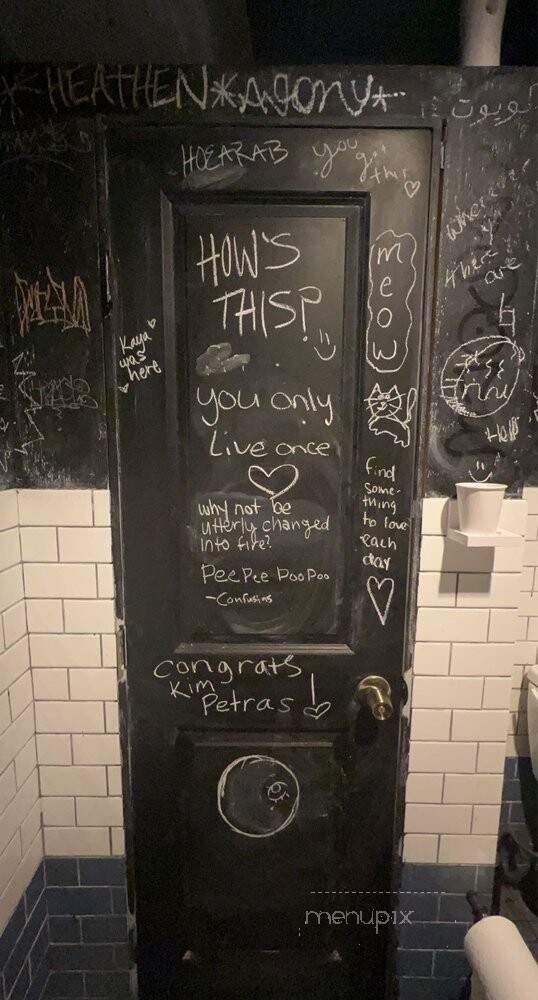 HEATHEN*AGONY*
HOEARAB
you
got
this
HOW'S
THIS?
meow
Kaya
was
here
you only
Live once
why not be
utterly changed
into fire?
PeePee PooPoo
-Confusins
find
some-
thing
to love
each
day
congrats
Kim
Petras!
where
there
are
Help
menupix